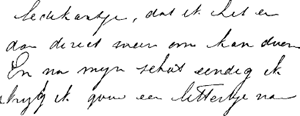 , dat ik het er
dan direct weer om kan doen
En na mijn schat eindig ik
krijg ik gauw een lettertje van